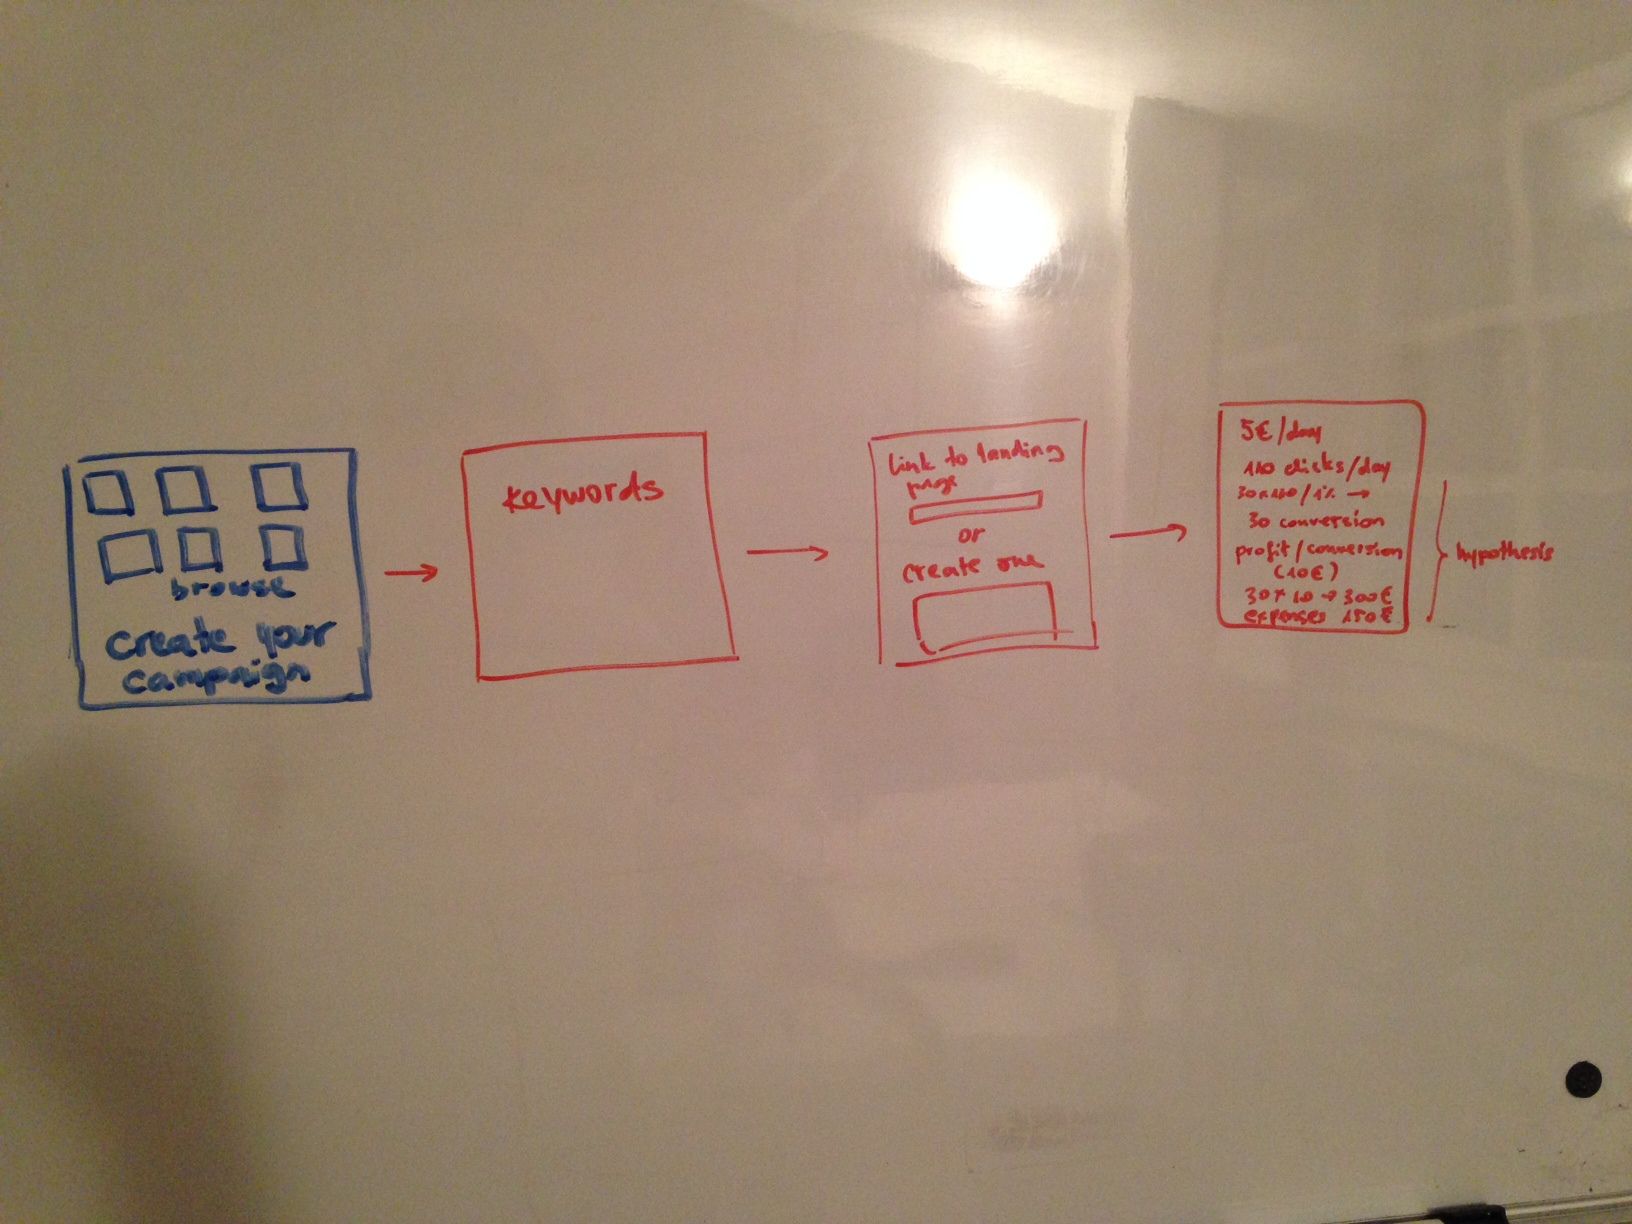 browse
create your
campaign
keywords
link to landing
page
or
create one
5€/day
110 clicks/day
30x100/1% →
30 conversion
profit/conversion
(10€)
30 x 10 → 300€
expenses 150€
hypothesis